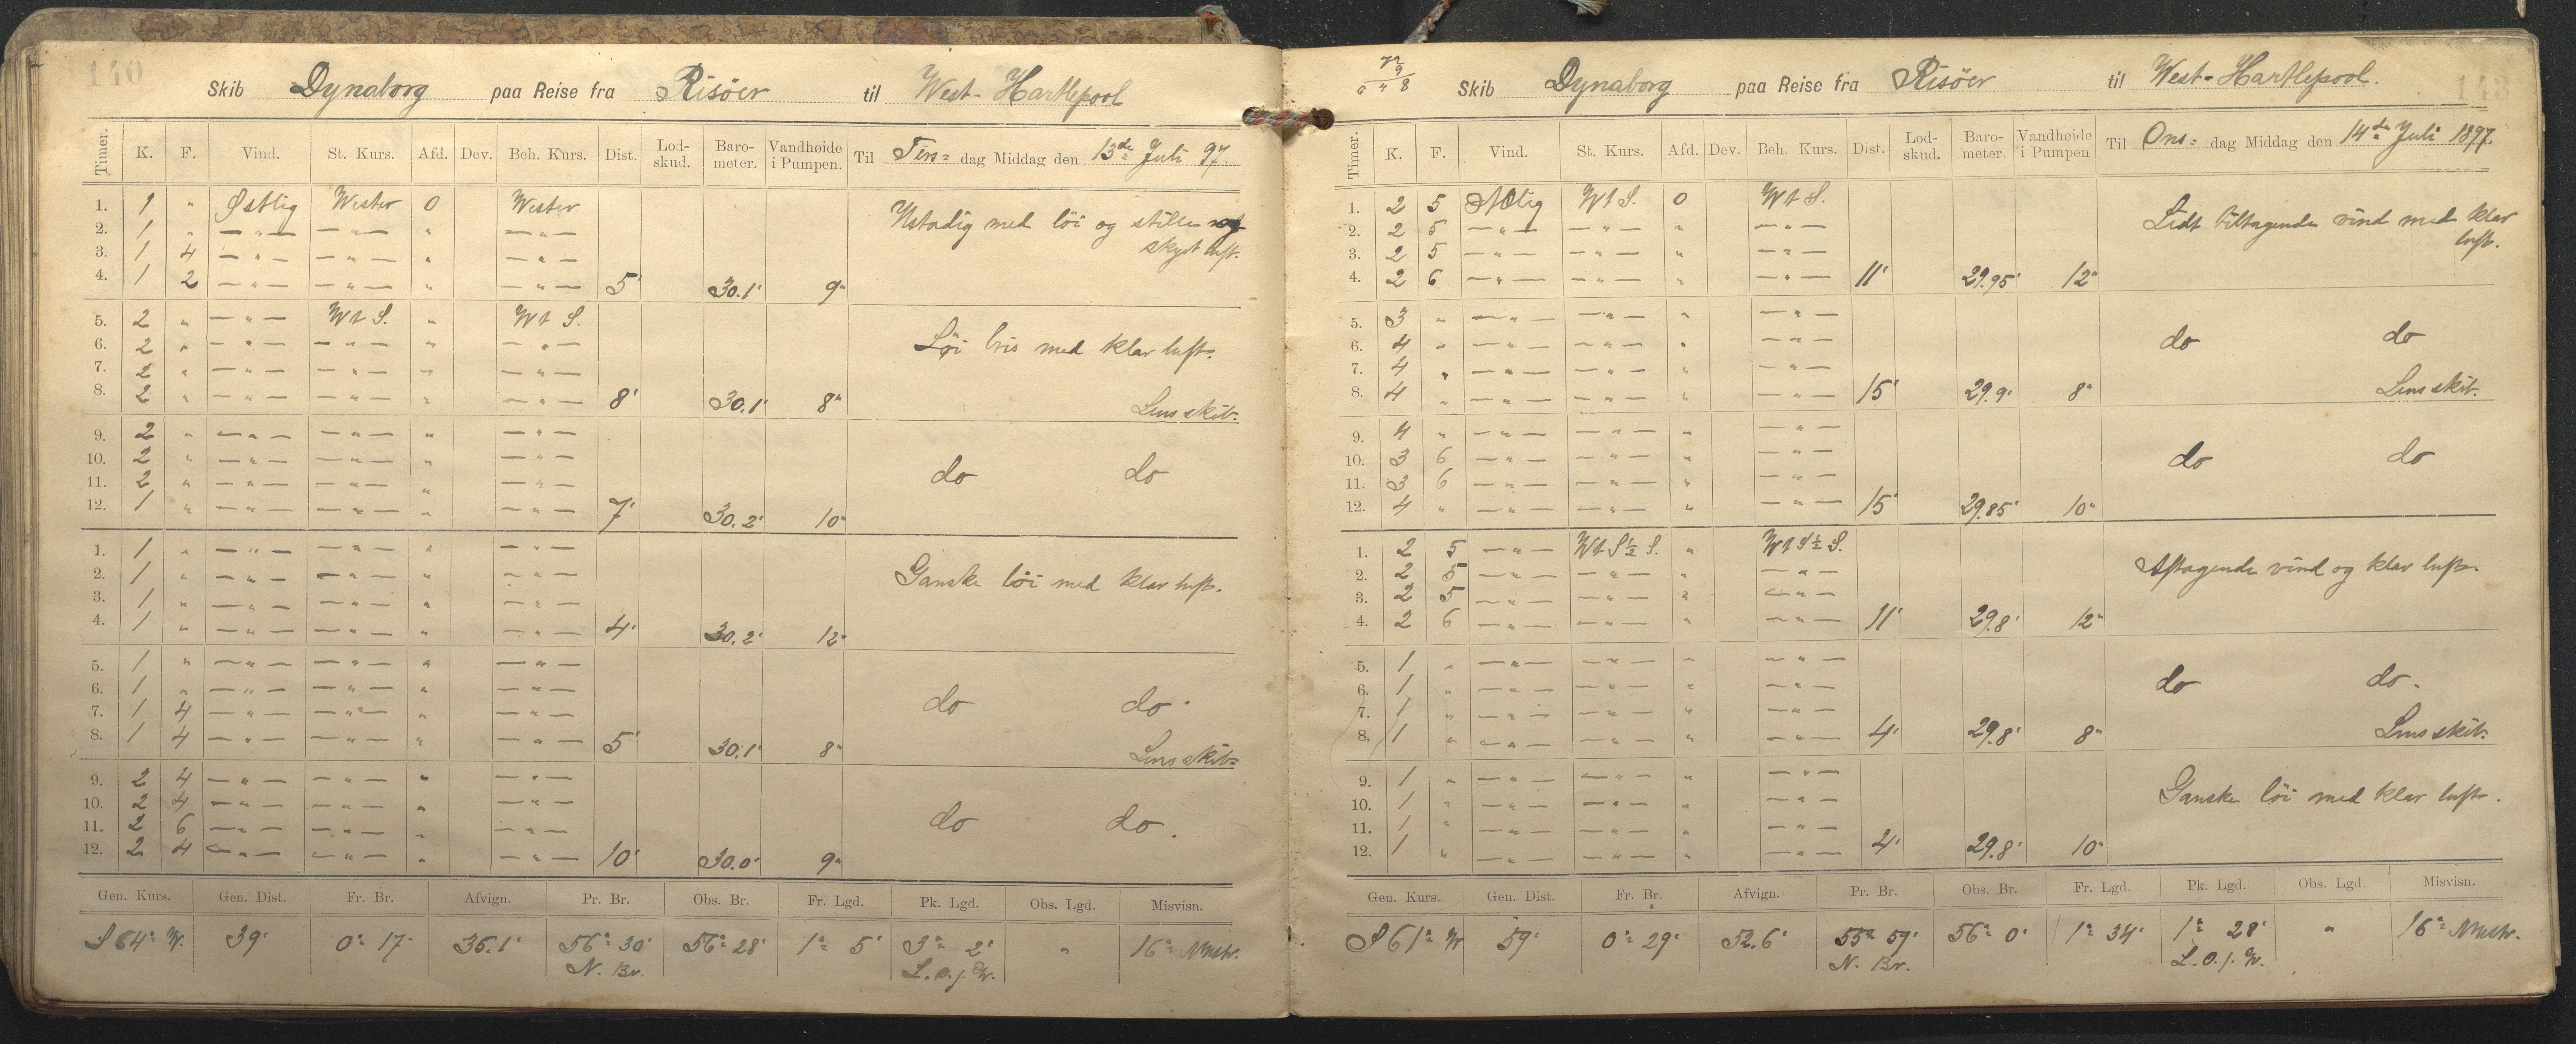 140
Skib Dynaborg paa Reise fra Risöer til West-Hartlepool
Timer. K. F. Vind. St. Kurs. Afd. Dev. Beh. Kurs. Dist. Lod-skud. Baro-meter. Vandhøide i Pumpen. Til Tirs= dag Middag den 13de Juli 97.
1. 1 " Østlig Wester 0 Wester Ustadig med löi og stille og
2. 1 " — " — — " — " — " — skyet luft.
3. 1 4 — " — — " — " — " —
4. 1 2 — " — — " — " — " — 5' 30.1' 9"
5. 2 " — " — W t S. " W t S.
6. 2 " — " — — " — " — " — Löi bris med klar luft.
7. 2 " — " — — " — " — " —
8. 2 " — " — — " — " — " — 8' 30.1' 8" Lens skib.
9. 2 " — " — — " — " — " —
10. 2 " — " — — " — " — " — do do
11. 2 " — " — — " — " — " —
12. 1 " — " — — " — " — " — 7' 30.2' 10"
1. 1 " — " — — " — " — " —
2. 1 " — " — — " — " — " — Ganske löi med klar luft.
3. 1 " — " — — " — " — " —
4. 1 " — " — — " — " — " — 4' 30.2' 12"
5. 1 " — " — — " — " — " —
6. 1 " — " — — " — " — " — do do.
7. 1 4 — " — — " — " — " —
8. 1 4 — " — — " — " — " — 5' 30.1' 8" Lens skib.
9. 2 4 — " — — " — " — " —
10. 2 4 — " — — " — " — " — do do.
11. 2 6 — " — — " — " — " —
12. 2 4 — " — — " — " — " — 10' 30.0' 9"
Gen. Kurs. Gen. Dist. Fr. Br. Afvign. Pr. Br. Obs. Br. Fr. Lgd. Pk. Lgd. Obs. Lgd. Misvisn.
S 64° W. 39' 0° 17' 35.1' 56° 30' 56° 28' 1° 5' 3° 2' " 16° Nvestr.
N. Br. L. o. f. Gr.
143
Skib Dynaborg paa Reise fra Risöer til West-Hartlepool.
Timer. K. F. Vind. St. Kurs. Afd. Dev. Beh. Kurs. Dist. Lod-skud. Baro-meter. Vandhøide i Pumpen Til Ons= dag Middag den 14de Juli 1897.
1. 2 5 NOlig W t S. 0 W t S. Lidt tiltagende vind med klar
2. 2 5 — " — — " — " — " — luft.
3. 2 5 — " — — " — " — " —
4. 2 6 — " — — " — " — " — 11' 29.95' 12"
5. 3 " — " — — " — " — " —
6. 4 " — " — — " — " — " — do do
7. 4 " — " — — " — " — " —
8. 4 " — " — — " — " — " — 15' 29.9' 8" Lens skib.
9. 4 " — " — — " — " — " —
10. 3 6 — " — — " — " — " — do do
11. 3 6 — " — — " — " — " —
12. 4 " — " — — " — " — " — 15' 29.85' 10"
1. 2 5 — " — W t S ½ S. " W t S ½ S.
2. 2 5 — " — — " — " — " — Aftagende vind og klar luft.
3. 2 5 — " — — " — " — " —
4. 2 6 — " — — " — " — " — 11' 29.8' 12"
5. 1 " — " — — " — " — " —
6. 1 " — " — — " — " — " — do do.
7. 1 " — " — — " — " — " —
8. 1 " — " — — " — " — " — 4' 29.8' 8" Lens skib.
9. 1 " — " — — " — " — " —
10. 1 " — " — — " — " — " — Ganske löi med klar luft.
11. 1 " — " — — " — " — " —
12. 1 " — " — — " — " — " — 4' 29.8' 10"
Gen. Kurs. Gen. Dist. Fr. Br. Afvign. Pr. Br. Obs. Br. Fr. Lgd. Pk. Lgd. Obs. Lgd. Misvisn.
S 61° W 59' 0° 29' 52.6' 55° 59' 56° 0' 1° 34' 1° 28' " 16° Nvestr.
N. Br. L. O. f. Gr.